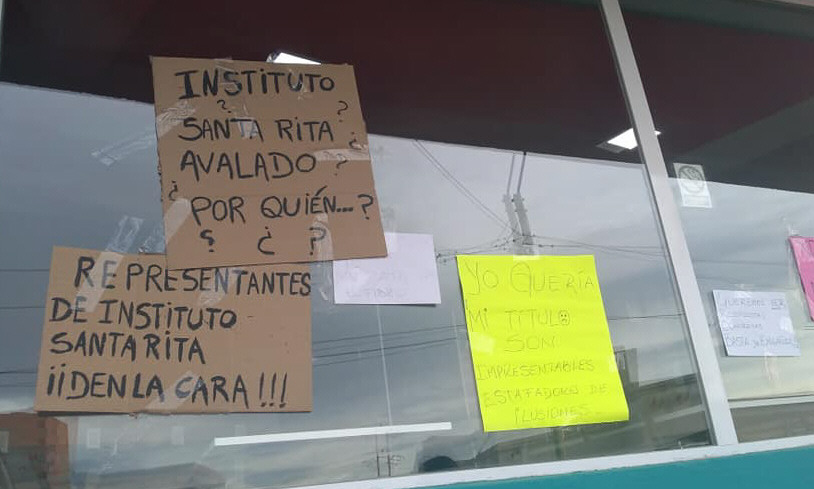 INSTITUTO
?
?
SANTA RITA ¿
AVALADO ?
¿
POR QUIÉN...?
? ¿ ?
REPRESENTANTES
DE INSTITUTO
SANTA RITA
¡¡DEN LA CARA!!!
YO QUERÍA
MI TITULO
SON
IMPRESENTABLES
ESTAFADORES DE
ILUSIONES
QUEREMOS SER